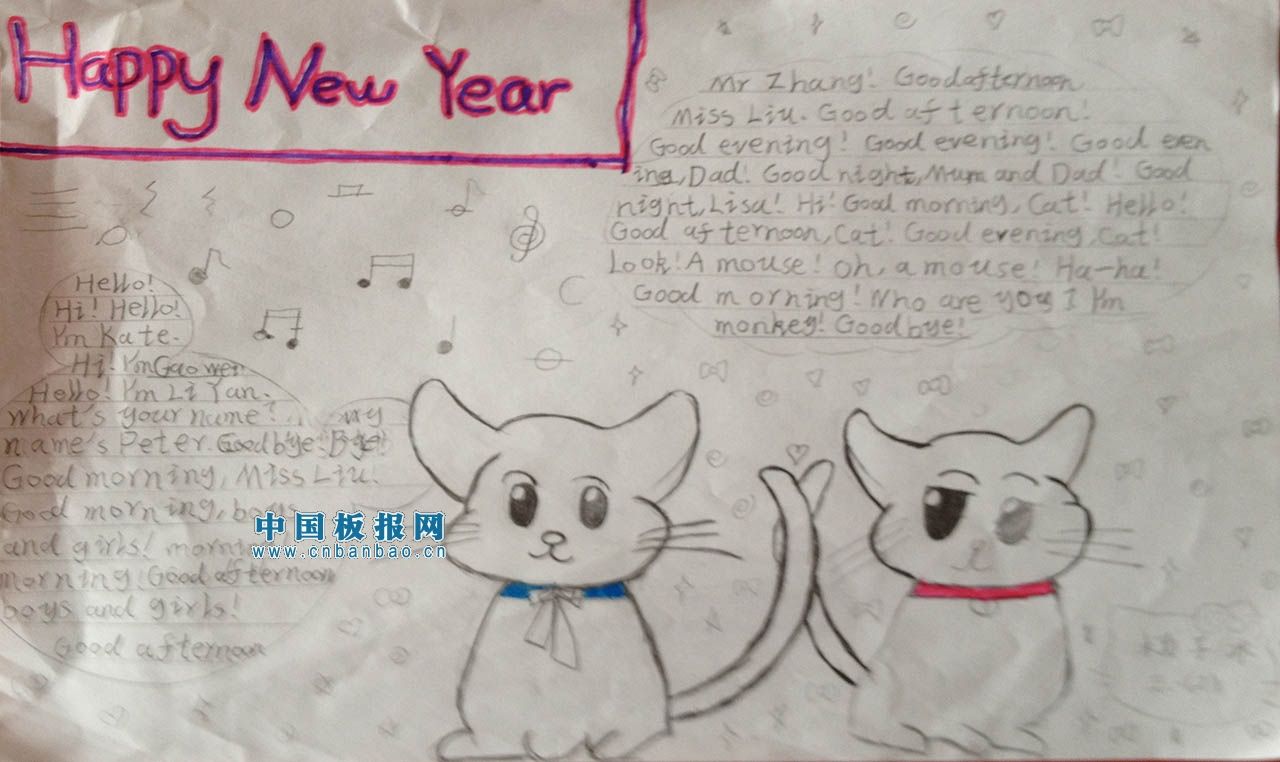 Happy New Year
Mr Zhang! Goodafternoon
Miss Liu. Good afternoon!
Good evening! Good evening! Good even
ing, Dad! Good night, Mum and Dad! Good
night, Lisa! Hi! Good morning, Cat! Hello!
Good afternoon, Cat! Good evening, Cat!
Look! A mouse! Oh, a mouse! Ha-ha!
Good morning! Who are you I I'm
monkey! Goodbye!
Hello!
Hi! Hello!
I'm Kate.
Hi! I'm Gao wei
Hello! I'm Li Yan.
What's your name? My
name's Peter. Goodbye! Bye!
Good morning, Miss Liu!
Good morning, boys
and girls!
morning! Good afternoon
boys and girls!
Good afternoon
中国板报网
www.cnbanbao.cn